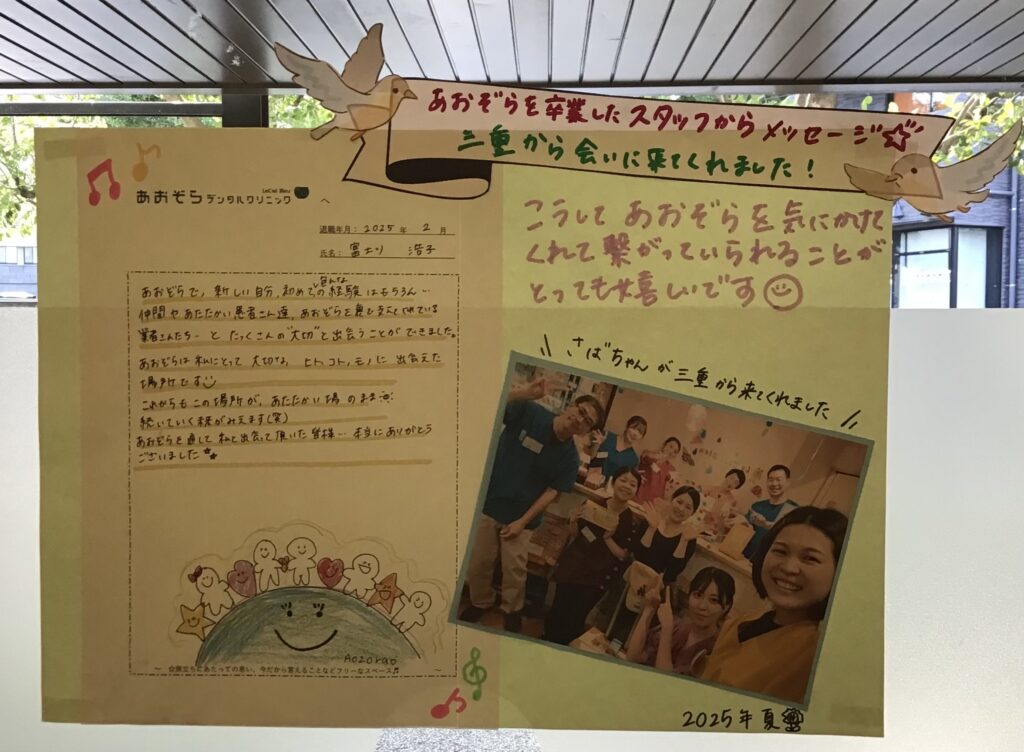 あおぞらを卒業したスタッフからメッセージ☆
三重から会いに来てくれました!
LeCiel Bleu
あおぞらデンタルクリニック へ
退職年月: 2025 年 2 月
氏名:
あおぞらで、新しい自分、初めての経験はもちろん…
色んな
仲間やあたたかい患者さん達、あおぞらを裏で支えてくれている
業者さんたち… と たっくさんの"大切"と出会うことができました。
あおぞらは私にとって 大切な、ヒト、コト、モノに 出会えた
場所です
これからも この場所が、あたたかい場 のまま
続いていく様がみえます(笑)
あおぞらを通して 私と出会って頂いた皆様… 本当にありがとう
ございました
Aozorao
~ ☆旅立ちにあたっての思い、今だから言えることなどフリーなスペース♬ ~
こうして あおぞらを気にかけて
くれて繋がっていられることが
とっても嬉しいです
\\ さばちゃんが三重から来てくれました //
2025年 夏